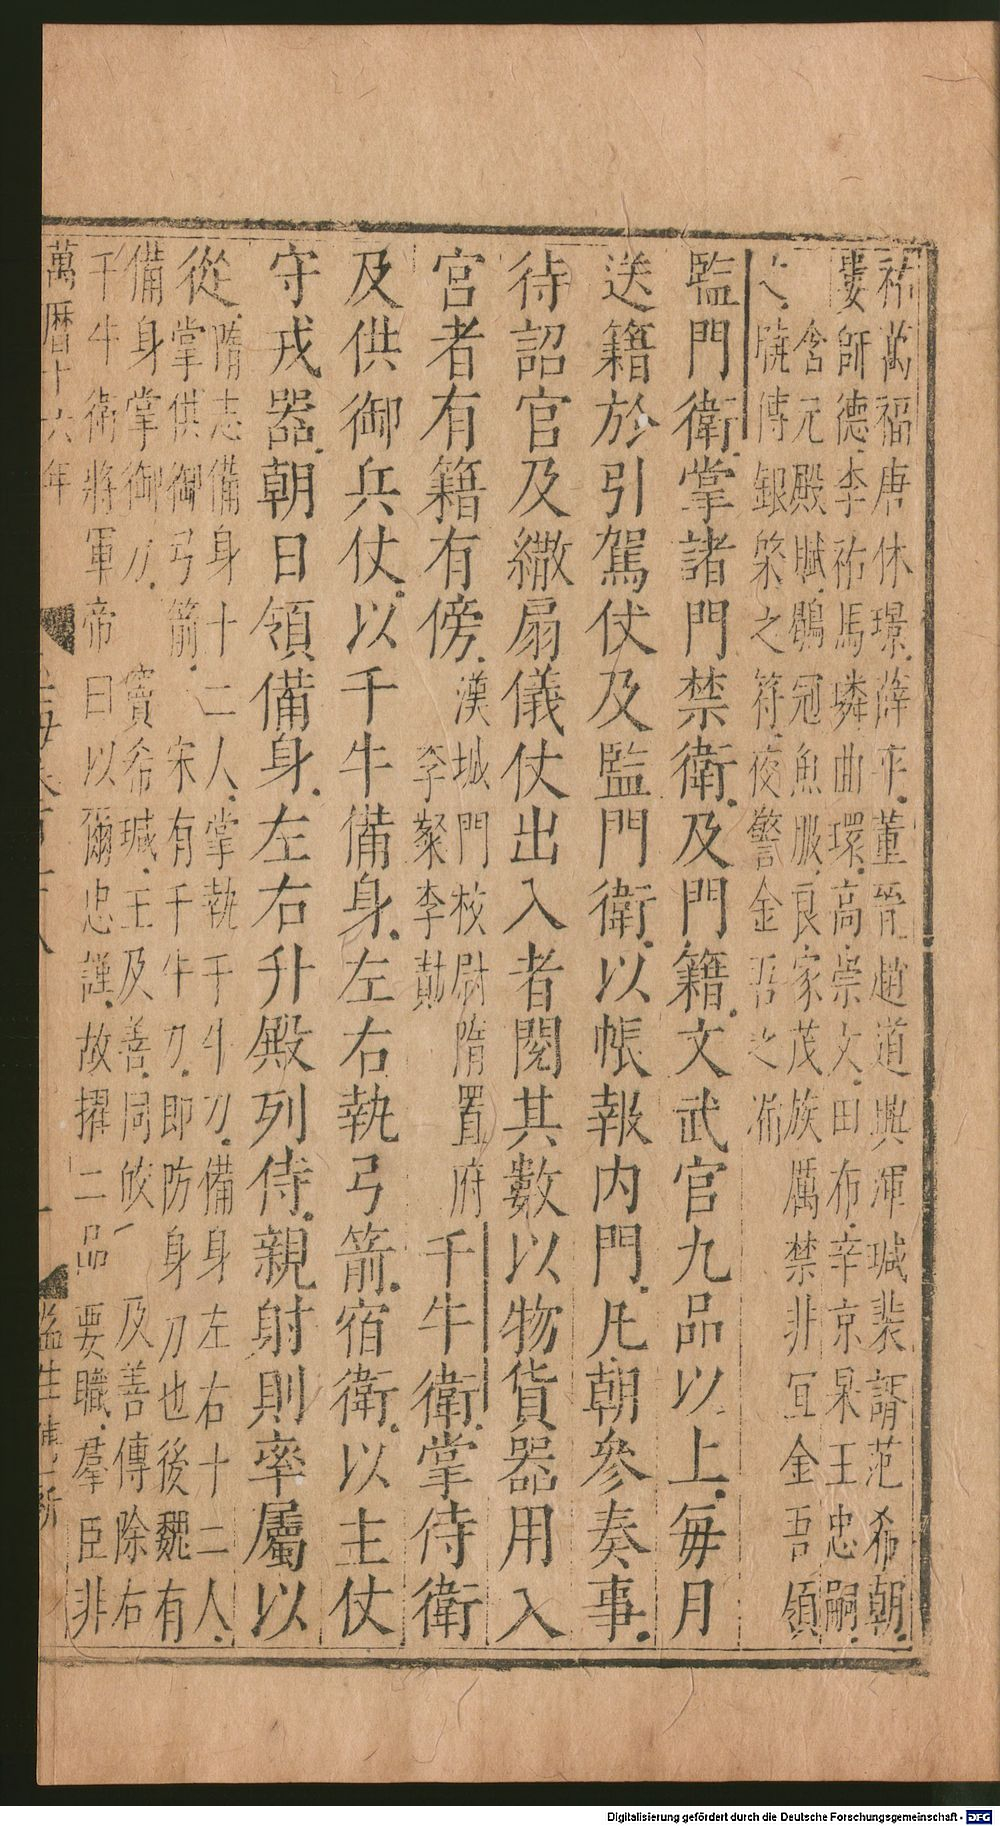 祐萬福唐休璟薛平董晉趙道興渾瑊裴諝范希朝
婁師德李祐馬璘曲環高崇文田布辛京杲王忠嗣
含元殿賦鶡冠魚服良家茂族厲禁非宜金吾領
之 傳銀棨之符夜警金吾之
監門衛掌諸門禁衛及門籍文武官九品以上每月
送籍於引駕仗及監門衛以帳報内門凡朝參奏事
待詔官及繖扇儀仗出入者閱其數以物貨器用入
宮者有籍有傍漢城門校尉隋置府
李粲李勣
千牛衛掌侍衛
及供御兵仗以千牛備身左右執弓箭宿衛以主仗
守戎器朝日領備身左右升殿列侍親射則率屬以
從隋志備身十二人掌執千牛刀備身左右十二人
掌供御弓箭宋有千牛刀即防身刀也後魏有
備身掌御刀竇希瑊王及善同皎及善傳除右
千牛衛將軍帝曰以爾忠謹故擢二品要職羣臣非
萬曆十六年
玉海卷百
監生
Digitalisierung gefördert durch die Deutsche Forschungsgemeinschaft - DFG